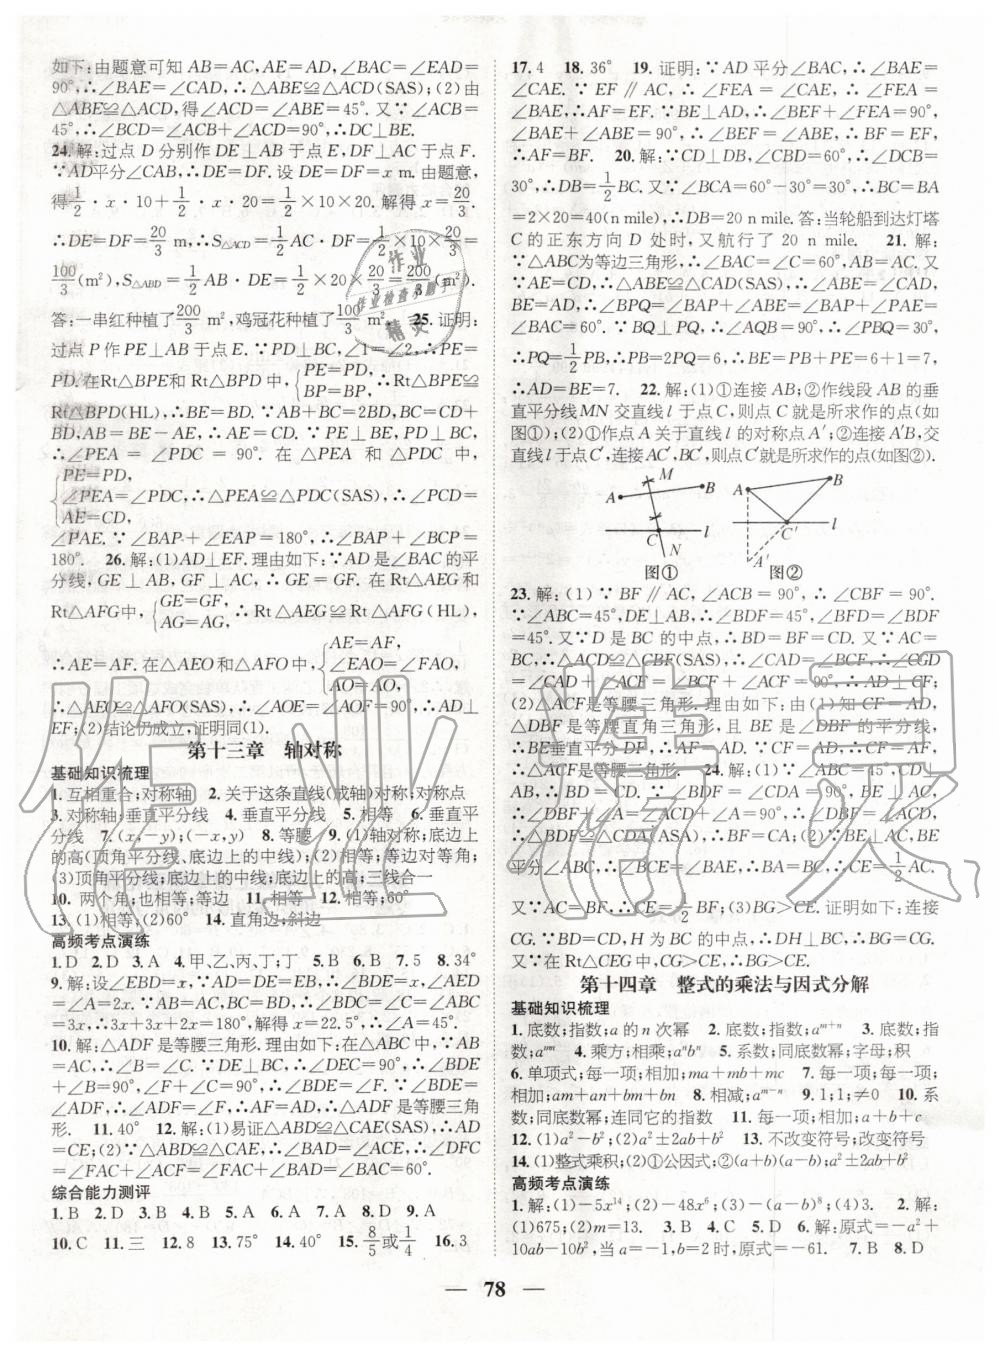 如下:由题意可知 AB=AC,AE=AD,∠BAC=∠EAD=
90°,∴∠BAE=∠CAD,∴△ABE≌△ACD(SAS);(2)由
△ABE≌△ACD,得∠ACD=∠ABE=45°. 又∵∠ACB=
45°,∴∠BCD=∠ACB+∠ACD=90°,∴DC⊥BE.
24. 解:过点 D 分别作 DE⊥AB 于点 E,DF⊥AC 于点 F.
∵AD平分∠CAB,∴DE=DF. 设 DE=DF=x m. 由题意,
得 1/2·x·10+1/2·x·20=1/2×10×20. 解得 x=20/3.
∴DE=DF=20/3 m,∴S△ACD=1/2 AC·DF=1/2×10×20/3=
100/3(m²),S△ABD=1/2 AB·DE=1/2×20×20/3=200/3(m²).
答:一串红种植了200/3 m²,鸡冠花种植了100/3 m². 25. 证明:
过点 P 作 PE⊥AB 于点 E. ∵PD⊥BC,∠1=∠2,∴PE=
PD. 在Rt△BPE和 Rt△BPD 中,{PE=PD, BP=BP, ∴Rt△BPE≌
Rt△BPD(HL),∴BE=BD. ∵AB+BC=2BD,BC=CD+
BD,AB=BE-AE,∴AE=CD. ∵PE⊥BE,PD⊥BC,
∴∠PEA=∠PDC=90°. 在△PEA 和△PDC 中,
{PE=PD,
∠PEA=∠PDC,∴△PEA≌△PDC(SAS),∴∠PCD=
AE=CD,
∠PAE. ∵∠BAP+∠EAP=180°,∴∠BAP+∠BCP=
180°. 26. 解:(1)AD⊥EF. 理由如下:∵AD是∠BAC的平
分线,GE⊥AB,GF⊥AC,∴GE=GF. 在 Rt△AEG 和
Rt△AFG中,{GE=GF, AG=AG, ∴Rt△AEG≌Rt△AFG(HL),
∴AE=AF. 在△AEO和△AFO中,{AE=AF, ∠EAO=∠FAO, AO=AO,
∴△AEO≌△AFO(SAS),∴∠AOE=∠AOF=90°,∴AD⊥
EF;(2)结论仍成立,证明同(1).
第十三章 轴对称
基础知识梳理
1. 互相重合;对称轴 2. 关于这条直线(成轴)对称;对称点
3. 对称轴;垂直平分线 4. 垂直平分线 5. 相等 6. 垂直平
分线 7. (x,-y);(-x,y) 8. 等腰 9. (1)轴对称;底边上
的高(顶角平分线、底边上的中线);(2)相等;等边对等角;
(3)顶角平分线;底边上的中线;底边上的高;三线合一
10. 两个角;也相等;等边 11. 相等 12. 相等;60°
13. (1)相等;(2)60° 14. 直角边;斜边
高频考点演练
1. D 2. D 3. A 4. 甲、乙、丙、丁;丁 5. B 6. B 7. 5 8. 34°
9. 解:设∠EBD=x,∵AD=DE=EB,∴∠BDE=x,∠AED
=∠A=2x. ∵AB=AC,BC=BD,∴∠BDC=∠C=∠ABC=
3x,∴3x+3x+2x=180°,解得 x=22.5°,∴∠A=45°.
10. 解:△ADF是等腰三角形. 理由如下:在△ABC中,∵AB
=AC,∴∠B=∠C. ∵DE⊥BC,∴∠DEC=90°,∴∠BDE+
∠B=90°,∠F+∠C=90°,∴∠BDE=∠F. ∵∠BDE=
∠ADF,∴∠ADF=∠F,∴AF=AD,∴△ADF是等腰三角
形. 11. 40° 12. 解:(1)易证△ABD≌△CAE(SAS),∴AD
=CE;(2)∵△ABD≌△CAE,∴∠BAD=∠ACE,∴∠DFC
=∠FAC+∠ACF=∠FAC+∠BAD=∠BAC=60°.
综合能力测评
1. B 2. D 3. B 4. B 5. A 6. A 7. B 8. D 9. A
10. C 11. 三 12. 8 13. 75° 14. 40° 15. 8/5或1/4 16. 3
17. 4 18. 36° 19. 证明:∵AD平分∠BAC,∴∠BAE=
∠CAE. ∵EF∥AC,∴∠FEA=∠CAE,∴∠FEA=
∠BAE,∴AF=EF. ∵BE⊥AD,∴∠BEF+∠FEA=90°,
∠BAE+∠ABE=90°,∴∠BEF=∠ABE,∴BF=EF,
∴AF=BF. 20. 解:∵CD⊥DB,∠CBD=60°,∴∠DCB=
30°,∴DB=1/2 BC. 又∵∠BCA=60°-30°=30°,∴BC=BA
=2×20=40(n mile),∴DB=20 n mile. 答:当轮船到达灯塔
C 的正东方向 D 处时,又航行了 20 n mile. 21. 解:
∵△ABC为等边三角形,∴∠BAC=∠C=60°,AB=AC. 又
∵AE=CD,∴△ABE≌△CAD(SAS),∴∠ABE=∠CAD,
BE=AD,∴∠BPQ=∠BAP+∠ABE=∠BAP+∠PAE=
∠BAC=60°. ∵BQ⊥PQ,∴∠AQB=90°,∴∠PBQ=30°,
∴PQ=1/2 PB,∴PB=2PQ=6,∴BE=PB+PE=6+1=7,
∴AD=BE=7. 22. 解:(1)①连接 AB;②作线段 AB 的垂
直平分线MN 交直线 l 于点 C,则点 C 就是所求作的点(如
图①);(2)①作点 A 关于直线 l 的对称点 A′;②连接 A′B,交
直线 l 于点 C′,连接 AC′,BC′,则点 C′就是所求作的点(如图②).
M
A B
C l
N
图①
A B
C′ l
A′
图②
23. 解:(1)∵BF∥AC,∠ACB=90°,∴∠CBF=90°.
∵∠ABC=45°,DE⊥AB,∴∠BDF=45°,∠BFD=∠BDF
=45°. 又∵D 是 BC 的中点,∴BD=BF=CD. 又∵AC=
BC,∴△ACD≌△CBF(SAS),∴∠CAD=∠BCF,∴∠CGD
=∠CAD+∠ACF=∠BCF+∠ACF=90°,∴AD⊥CF;
(2)△ACF是等腰三角形. 理由如下:由(1)知 CF=AD,
△DBF 是等腰直角三角形,且 BE 是∠DBF 的平分线,
∴BE垂直平分 DF,∴AF=AD. ∵CF=AD,∴CF=AF,
∴△ACF是等腰三角形. 24. 解:(1)∵∠ABC=45°,CD⊥
AB,∴BD=CD. ∵∠BDF=∠CDA=90°,∠BFD+
∠DBF=∠A+∠ACD=∠A+∠DBF=90°,∴∠BFD=∠A,
∴△BDF≌△CDA(ASA),∴BF=CA;(2)∵BE⊥AC,BE
平分∠ABC,∴∠BCE=∠BAE,∴BA=BC,∴CE=1/2 AC.
又∵AC=BF,∴CE=1/2 BF;(3)BG>CE. 证明如下:连接
CG. ∵BD=CD,H 为 BC 的中点,∴DH⊥BC,∴BG=CG.
又∵在 Rt△CEG 中,CG>CE,∴BG>CE.
第十四章 整式的乘法与因式分解
基础知识梳理
1. 底数;指数;a 的 n 次幂 2. 底数;指数;aᵐ⁺ⁿ 3. 底数;指
数;aᵐⁿ 4. 乘方;相乘;aⁿbⁿ 5. 系数;同底数幂;字母;积
6. 单项式;每一项;相加;ma+mb+mc 7. 每一项;每一项;
相加;am+an+bm+bn 8. 相减;aᵐ⁻ⁿ 9. 1;1;≠0 10. 系
数;同底数幂;连同它的指数 11. 每一项;相加;a+b+c
12. (1)a²-b²;(2)a²±2ab+b² 13. 不改变符号;改变符号
14. (1)整式乘积;(2)①公因式;②(a+b)(a-b);a²±2ab+b²
高频考点演练
1. 解:(1)-5x¹⁴;(2)-48x⁶;(3)-(a-b)⁸;(4)3. 2. 解:
(1)675;(2)m=13. 3. B 4. C 5. D 6. 解:原式=-a²+
10ab-10b²,当 a=-1,b=2 时,原式=-61. 7. B 8. D
— 78 —
作业
作业检查小帮手
精灵
作业精灵